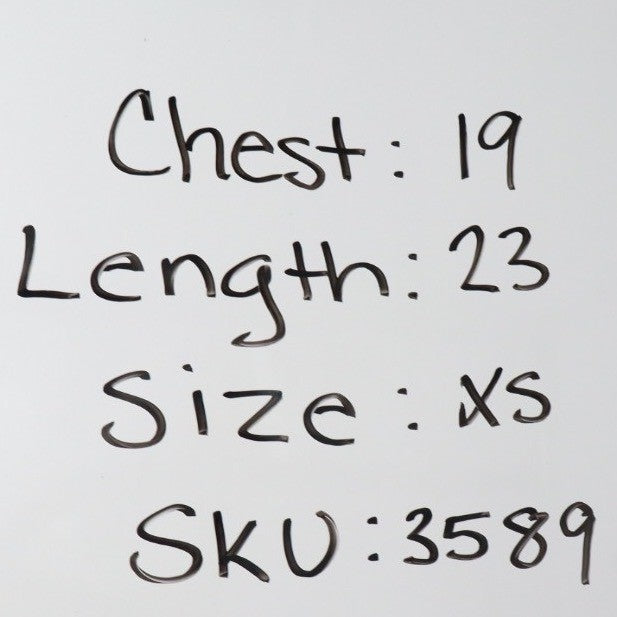 Chest: 19
Length: 23
Size: XS
SKU: 3589